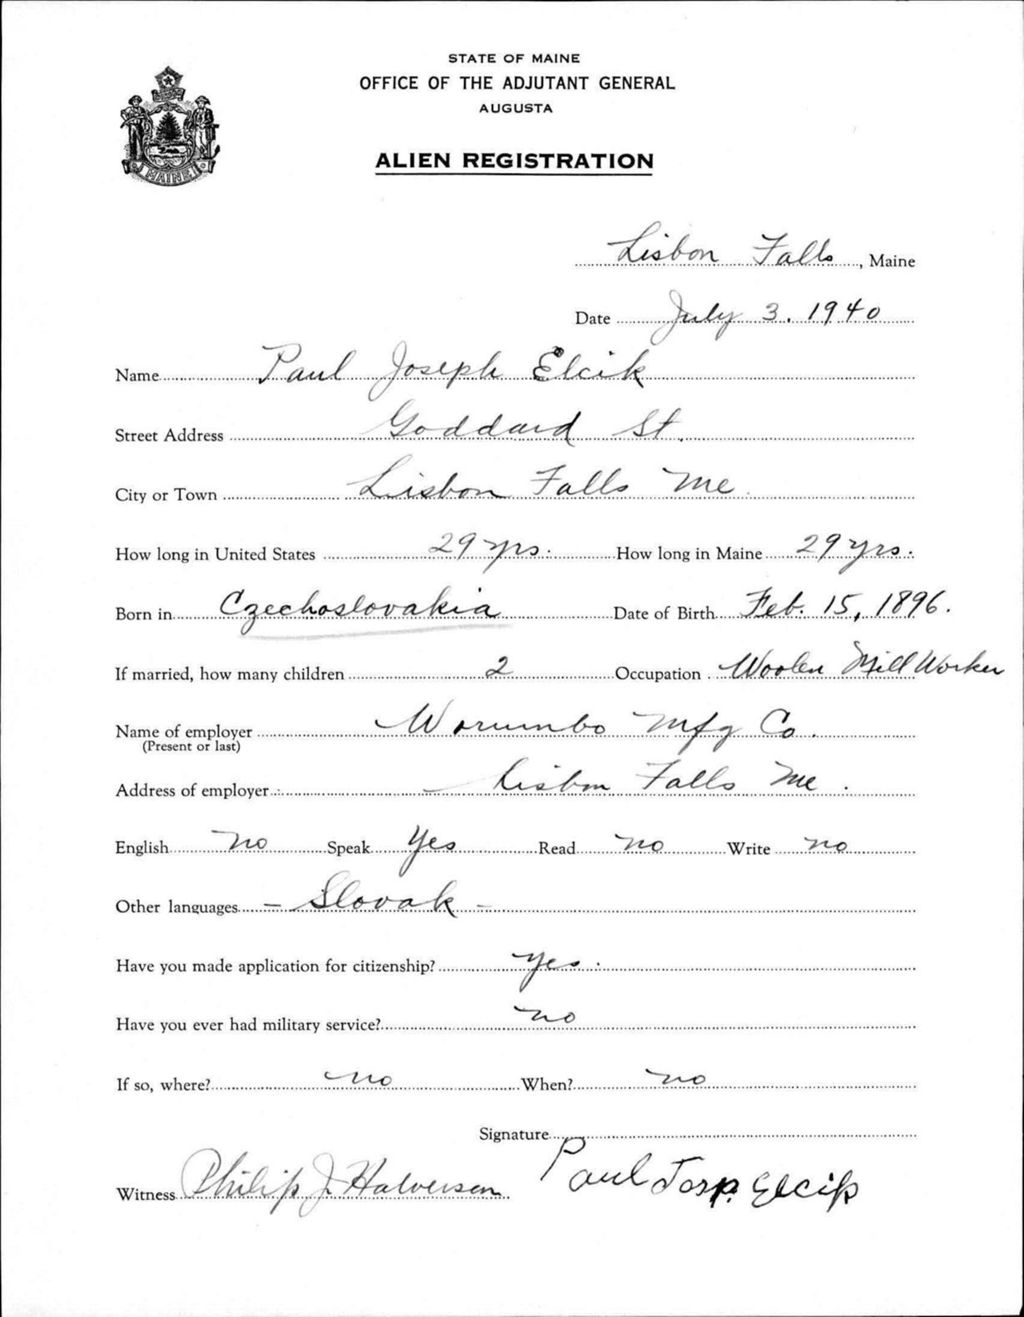 STATE OF MAINE
OFFICE OF THE ADJUTANT GENERAL
AUGUSTA
MAINE
ALIEN REGISTRATION
Lisbon Falls, Maine
Date July 3. 1940
Name Paul Joseph Elcik
Street Address Goddard St.
City or Town Lisbon Falls Me.
How long in United States 29 yrs. How long in Maine 29 yrs.
Born in Czechoslovakia Date of Birth Feb. 15, 1896.
If married, how many children 2 Occupation Woolen Mill Worker
Name of employer Worumbo Mfg Co.
(Present or last)
Address of employer Lisbon Falls Me.
English no Speak Yes Read no Write no
Other languages - Slovak -
Have you made application for citizenship? yes.
Have you ever had military service? no
If so, where? no When? no
Signature
Paul Josp. Elcik
Witness Philip J. Halverson